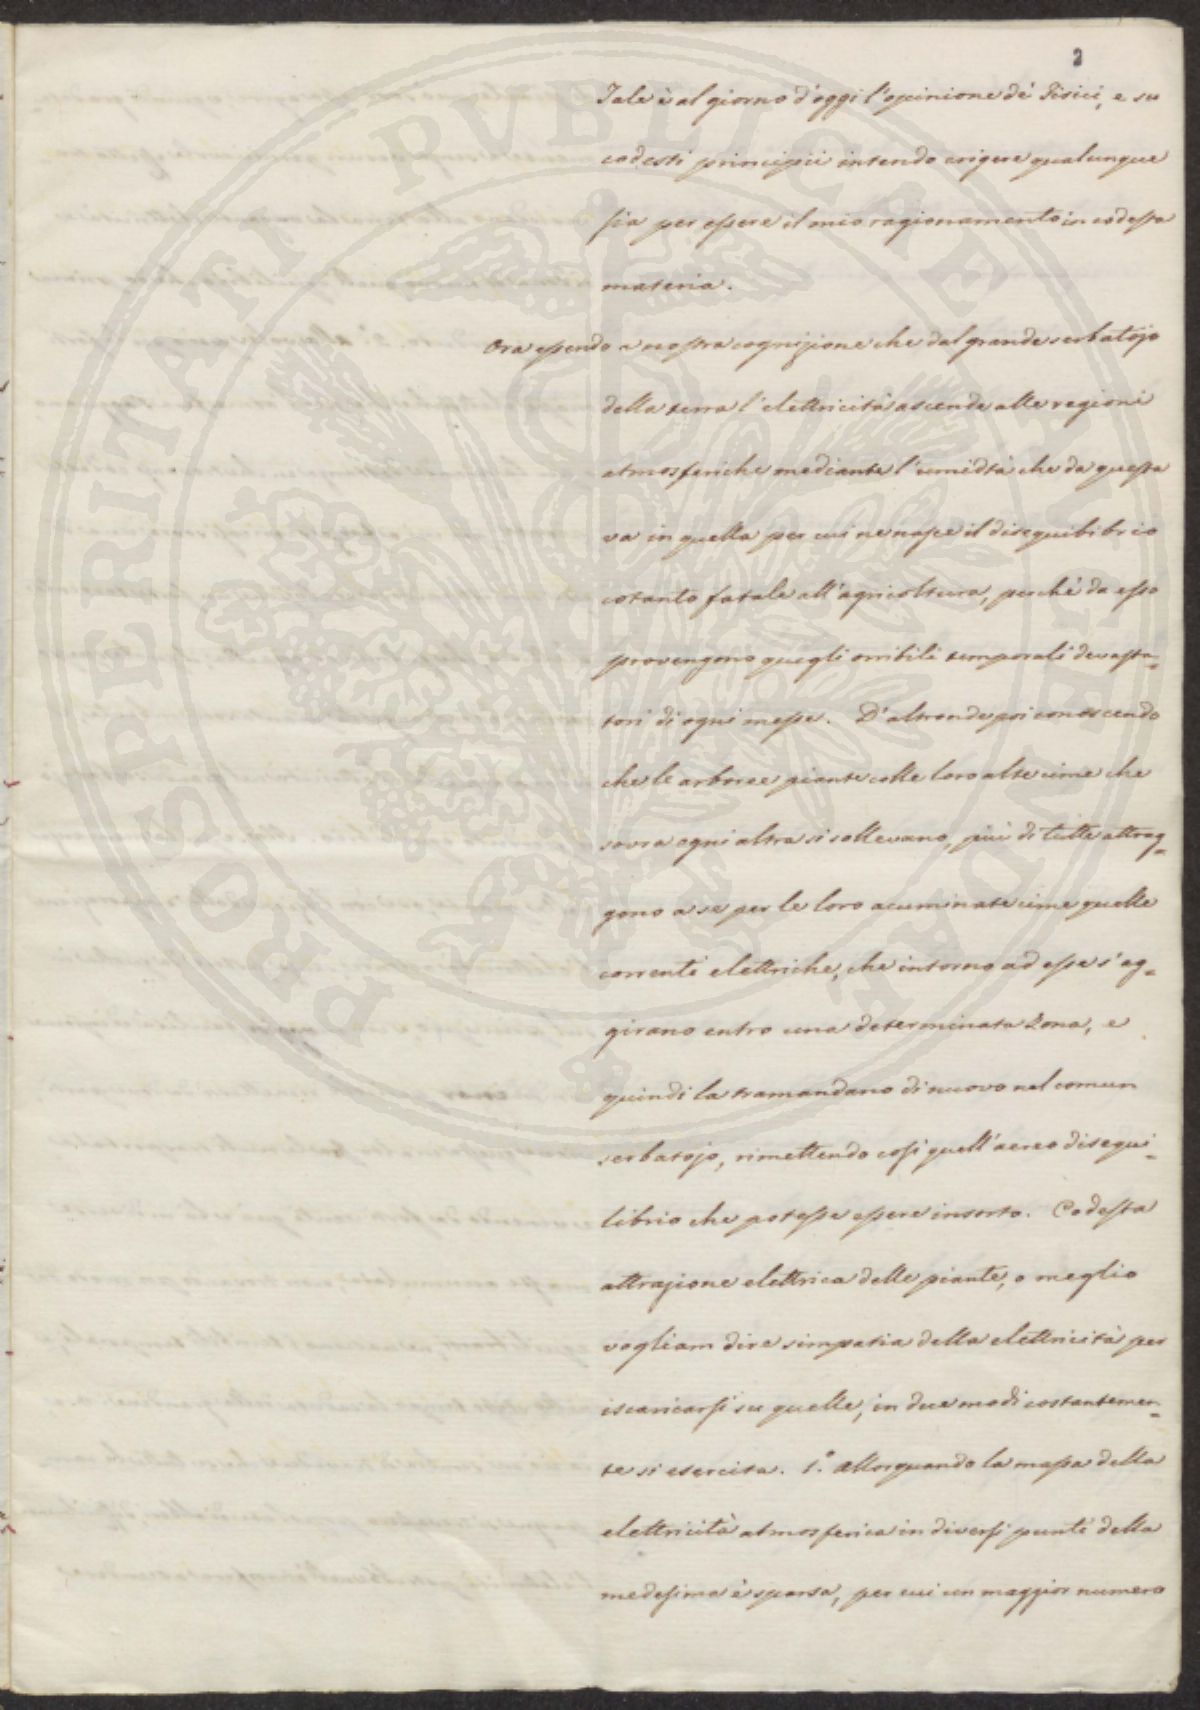 2
Tale è al giorno d'oggi l'opinione de' Fisici, e su
codesti principii intendo erigere qualunque
sia per essere il mio ragionamento in codesta
materia.
Ora essendo a nostra cognizione che dal grande serbatojo
della terra l'elettricità ascende alle regioni
atmosferiche mediante l'umidtà che da questa
va in quella per cui ne nasce il disequibibrio
cotanto fatale all'agricoltura, perchè da esso
provengono quegli orribili temporali devasta-
tori di ogni messe. D'altronde poi conoscendo
che le arboree piante colle loro alte cime che
sovra ogni altra si sollevano, più di tutte attrag-
gono a se per le loro acuminate cime quelle
correnti elettriche, che intorno ad esse s'ag-
girano entro una determinata zona, e
quindi la tramandano di nuovo nel comun
serbatojo, rimettendo così quell'aereo disequi-
librio che potesse essere insorto. Codesta
attrazione elettrica delle piante, o meglio
vogliam dire simpatia della elettricità per
iscaricarsi su quelle, in due modi costantemen-
te si esercita. 1.° Allorquando la massa della
elettricità atmosferica in diversi punti della
medesima è sparsa, per cui un maggior numero
PROSPERITATI PUBLICAE AUGENDAE